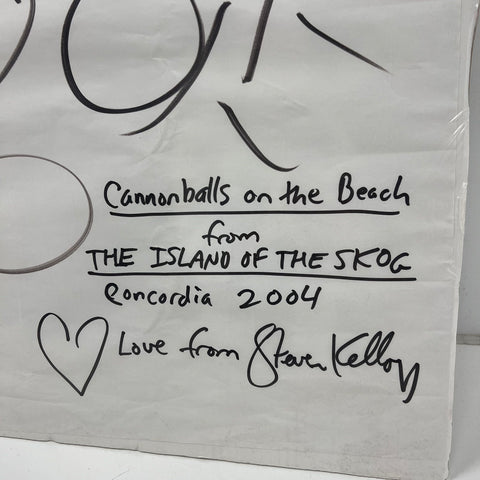 Cannonballs on the Beach
from
THE ISLAND OF THE SKOG
Concordia 2004
Love from Steven Kellogg